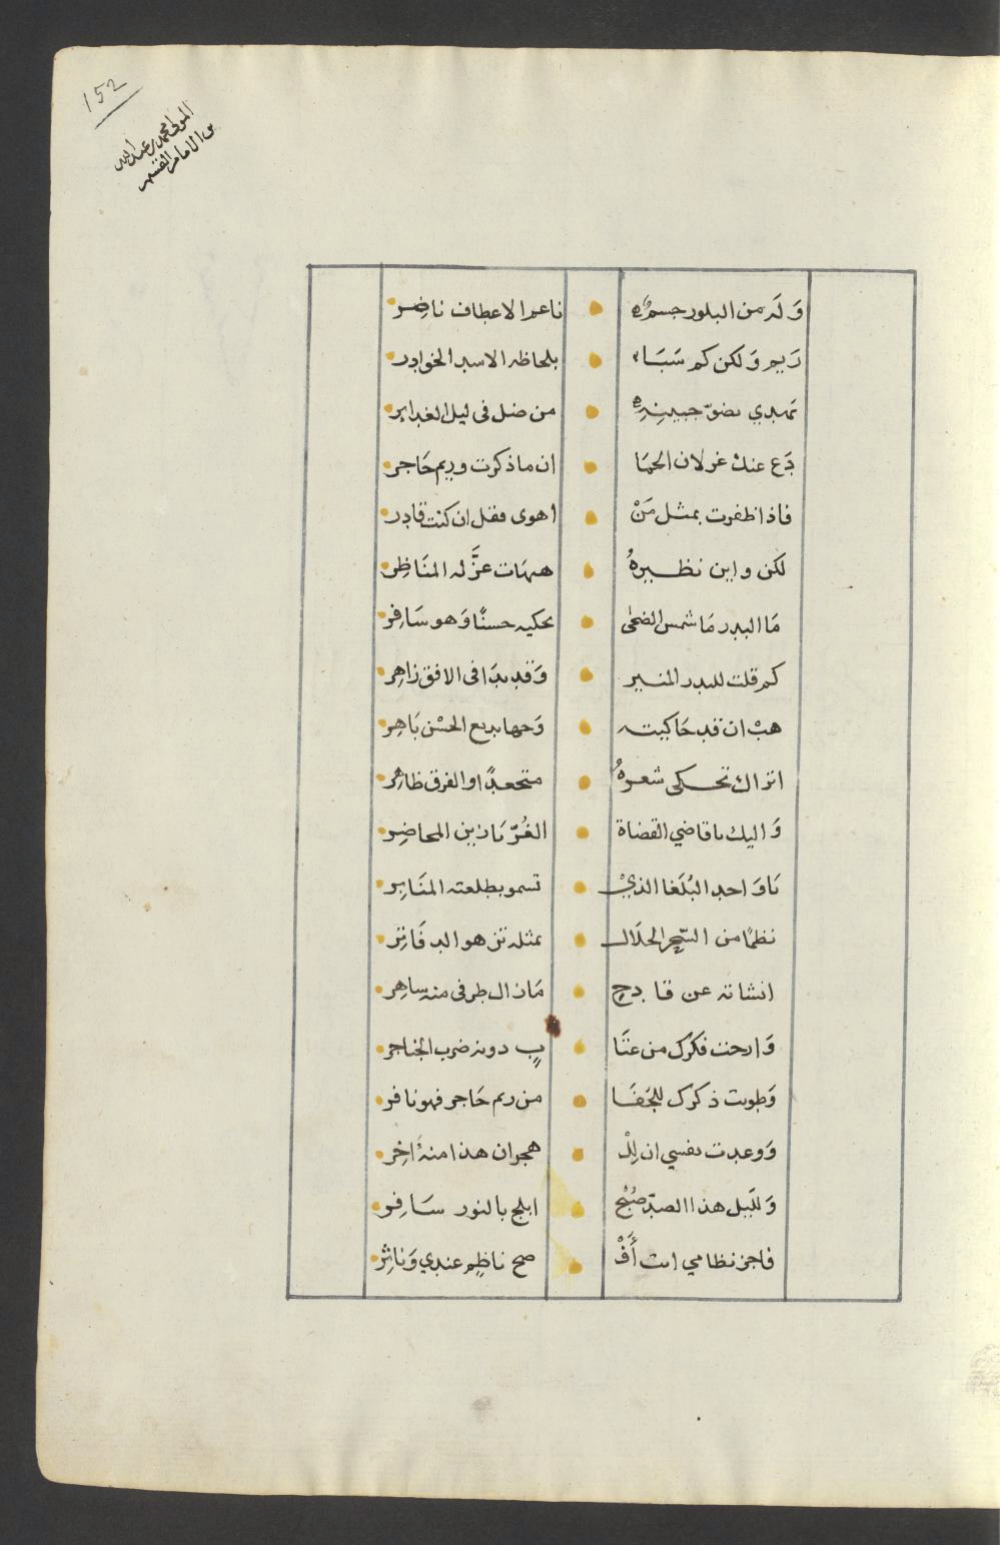 152
المولى محمد بن عبد الله
بن الامام القسم
وَلَه من البلور جسمٌ ناعم الاعطاف ناضر
رَيم وَلكن كم سَبَا بلحاظه الاسد الخوادر
تهدي بضوّ جبينِه من ضل في ليل الغداير
دَع عنك غزلان الحمَا ان ما ذكرت وريم حَاجر
فاذا ظفرت بمثل مَنْ اهوى فقل ان كنت قادر
لكن واين نظيرهُ هيهات عزَّ له المنَاظِر
مَا البدر مَا شمس الضحى يحكيه حسنًا وَهو سَافِر
كم قلت للبدر المنير وَقد بدَا في الافق زاهِر
هبْ ان قد حَاكيته وَجها بديع الحسْن بَاهِر
اتراك تحكي شعرهُ متجعدًا او الفرق ظاهر
وَاليك يا قاضي القضاة الغُرّ يَا زين المحاضِر
يَا وَاحد البُلَغا الذيْ تسمو بطلعته المنَابر
نظمًا من السّحر الحلَال بمثله تزهو الدفَاتِر
انشاته عن قادحٍ مَا زال طرفي منه سَاهِر
وَارحت فكرك من عتَا بٍ دونه ضرب الخناجر
وَطويت ذكرك للجَفَا من ريم حَاجر فهو نافر
وَوعدت نفسي ان لِلْ هجران هذا منهُ اخِر
وَلليل هذا الصدّ صُبْح ابلج بالنور سَافِر
فاجز نظامي انت أَفْ صح ناظِم عندي وَناثِر